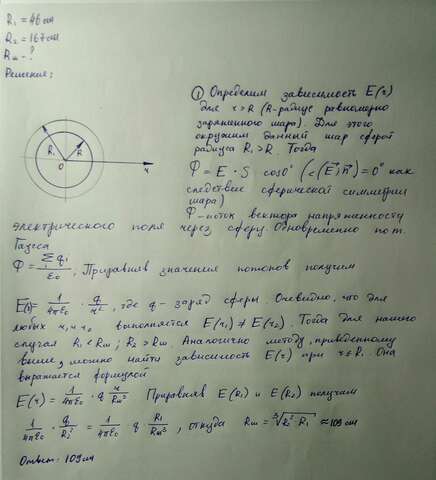 R₁ = 46 см
R₂ = 167 см
Rш - ?
Решение:
① Определим зависимость E(r)
для r > R (R-радиус равномерно
заряженного шара). Для этого
окружим данный шар сферой
радиуса R₁ > R. Тогда
R₁
R
O
r
Ф = E · S cos0° (∠(E⃗; n⃗) = 0° как
следствие сферической симметрии
шара)
Ф - поток вектора напряженности
электрического поля через сферу. Одновременно по т.
Гаусса
Ф = Σqᵢ/ε₀, Приравняв значения потоков получим
E(r) = 1/4πε₀ · q/r², где q - заряд сферы. Очевидно, что для
любых r₁ и r₂ выполняется E(r₁) ≠ E(r₂). Тогда для нашего
случая R₁ < Rш; R₂ > Rш. Аналогично методу, приведенному
выше, можно найти зависимость E(r) при r ≤ R. Она
выражается формулой
E(r) = 1/4πε₀ · q r/Rш³ Приравняв E(R₁) и E(R₂) получим
1/4πε₀ · q/R₂² = 1/4πε₀ · q R₁/Rш³, откуда Rш = ∛R₂² · R₁ ≈ 109 см
Ответ: 109 см